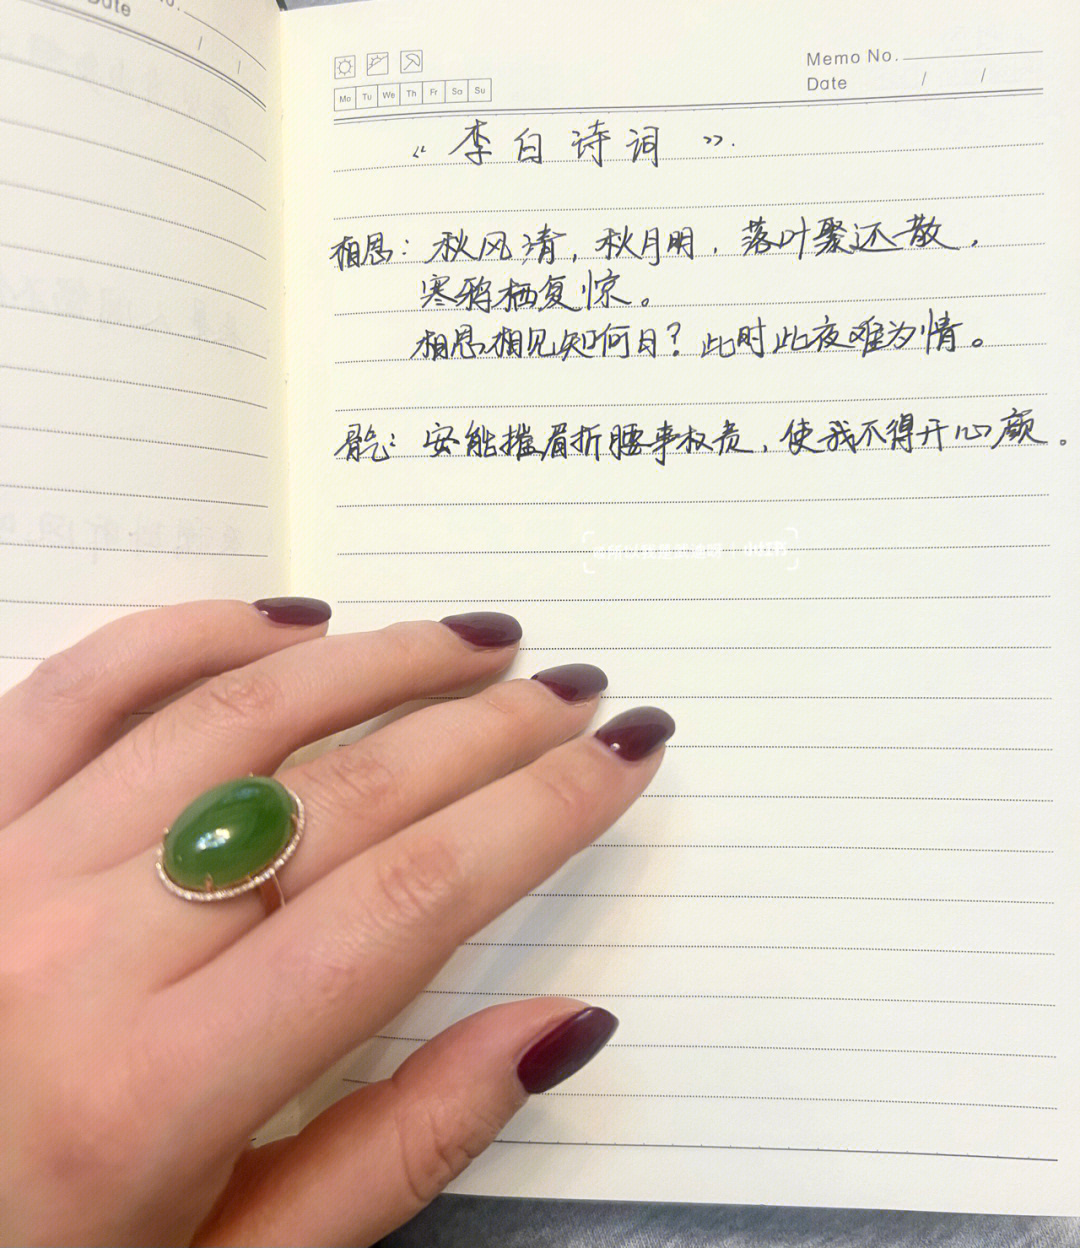 Date
Memo No.
Date / /
Mo Tu We Th Fr Sa Su
“李白诗词”.
相思：秋风清，秋月明，落叶聚还散，
寒鸦栖复惊。
相思相见知何日？此时此夜难为情。
骨气：安能摧眉折腰事权贵，使我不得开心颜。